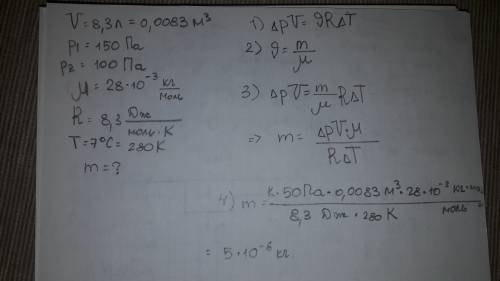 V = 8,3 л = 0,0083 м³
p1 = 150 Па
p2 = 100 Па
μ = 28·10⁻³ кг/моль
R = 8,3 Дж/моль·К
T = 7°C = 280 К
m = ?
1) ΔpV = ϑRΔT
2) ϑ = m/μ
3) ΔpV = m/μ RΔT
=> m = ΔpV·μ / RΔT
4) m = К·50 Па·0,0083 м³·28·10⁻³ кг· / 8,3 Дж·280 К моль =
= 5·10⁻⁶ кг.